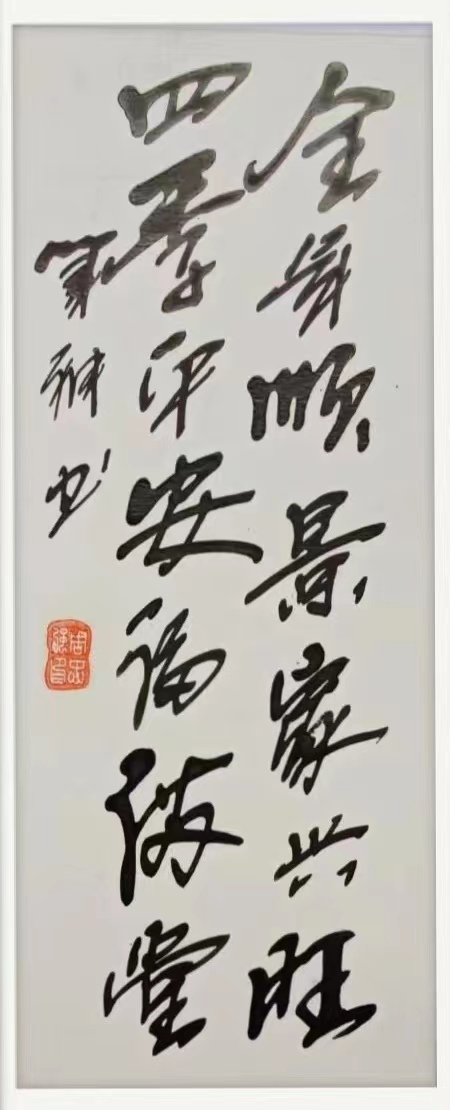 全年顺景家兴旺
四季平安福满堂
书